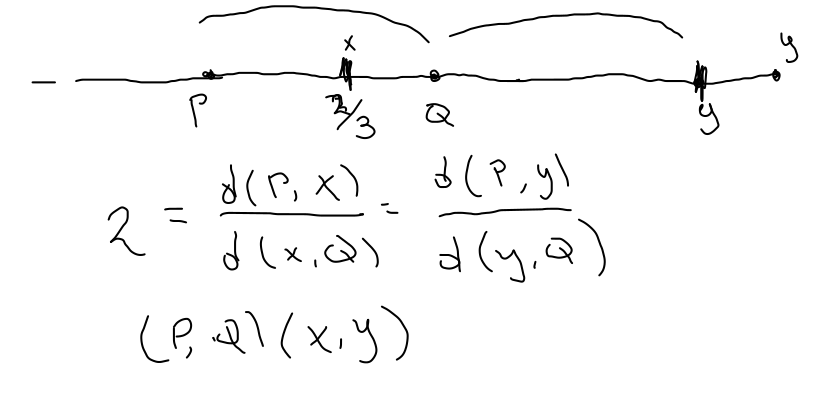 x y
P 2/3 Q y
2 = d(P, x) / d(x, Q) = d(P, y) / d(y, Q)
(P, Q) (x, y)